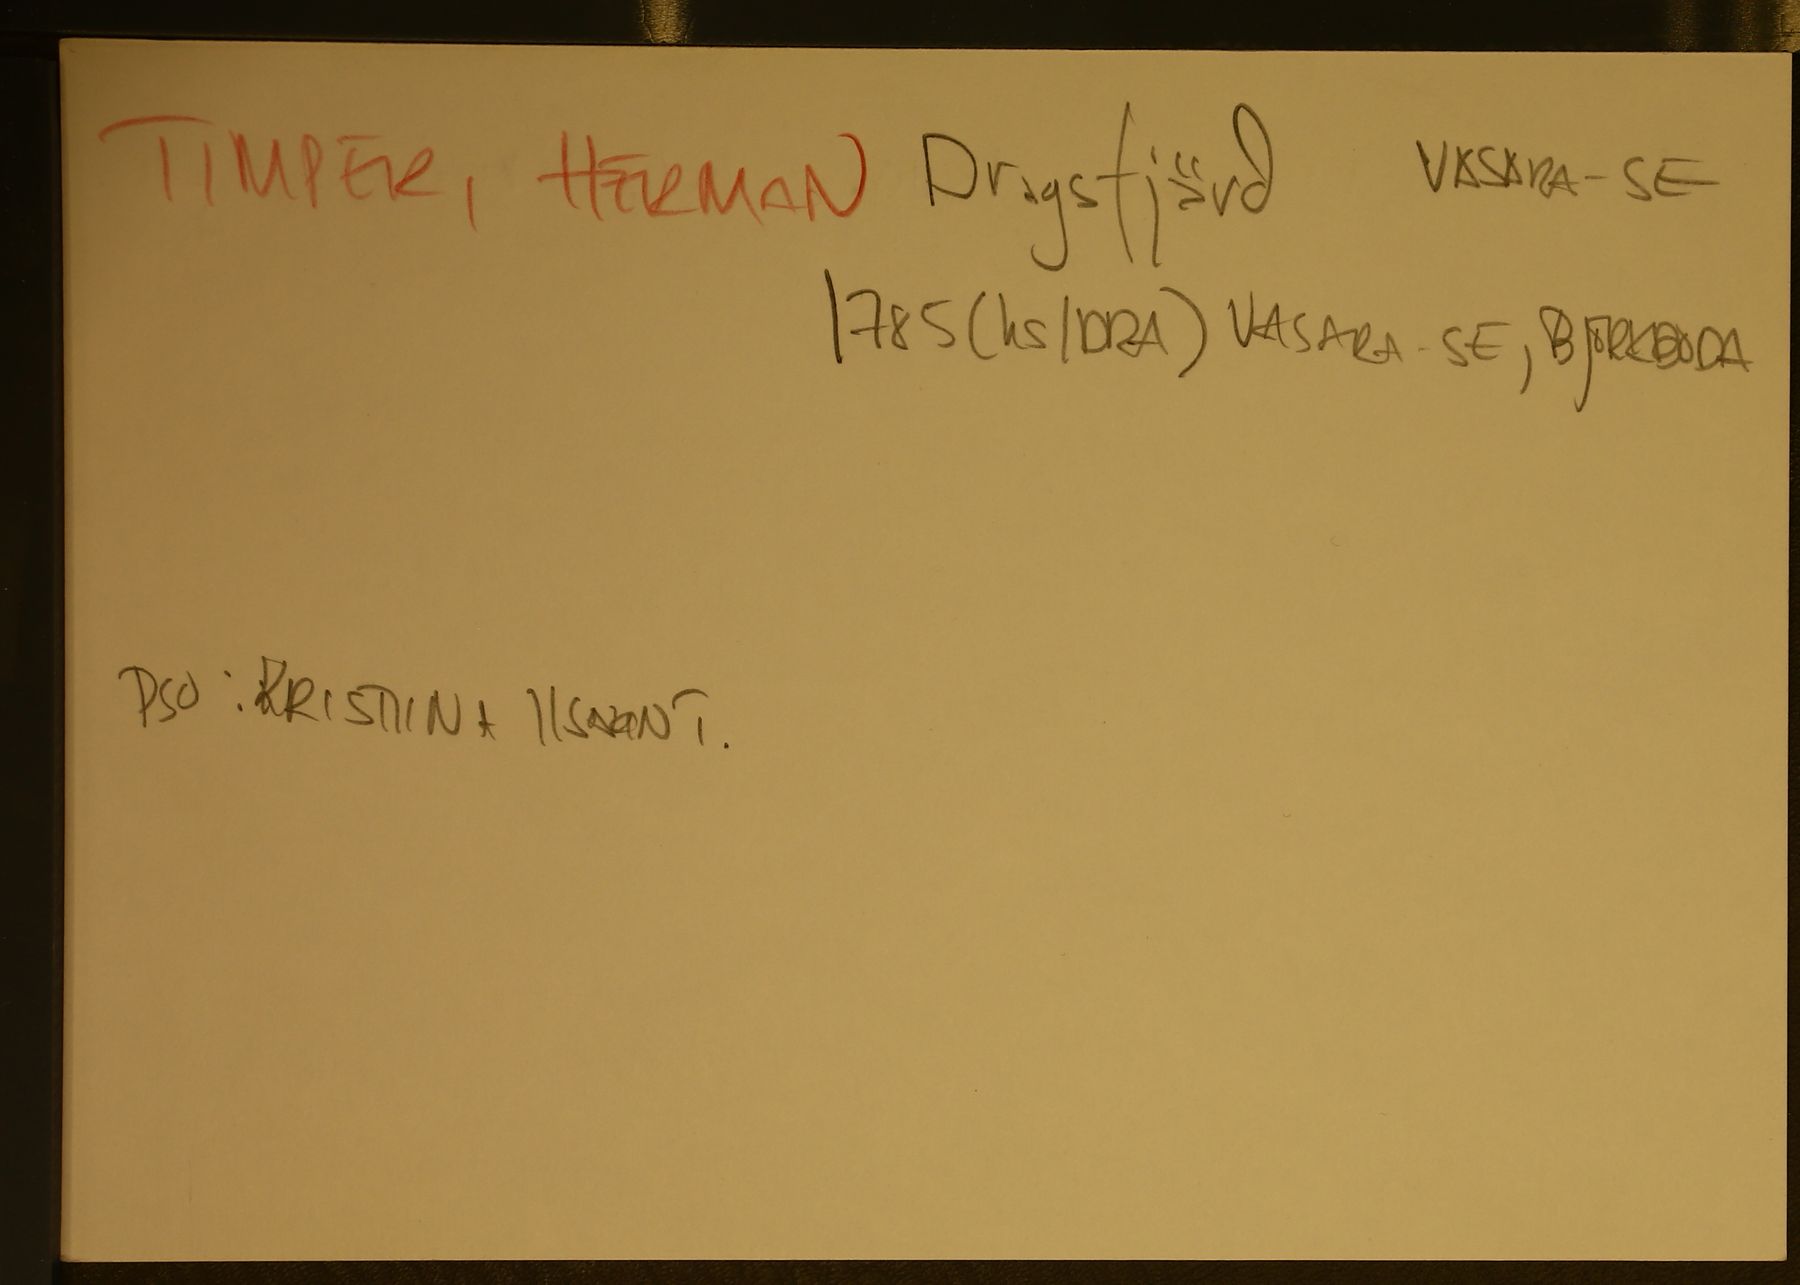 TIMPER, HERMAN Dragsfjärd VASARA-SE
1785 (ks/DRA) VASARA-SE, BJÖRKBODA
PSO: KRISTIINA